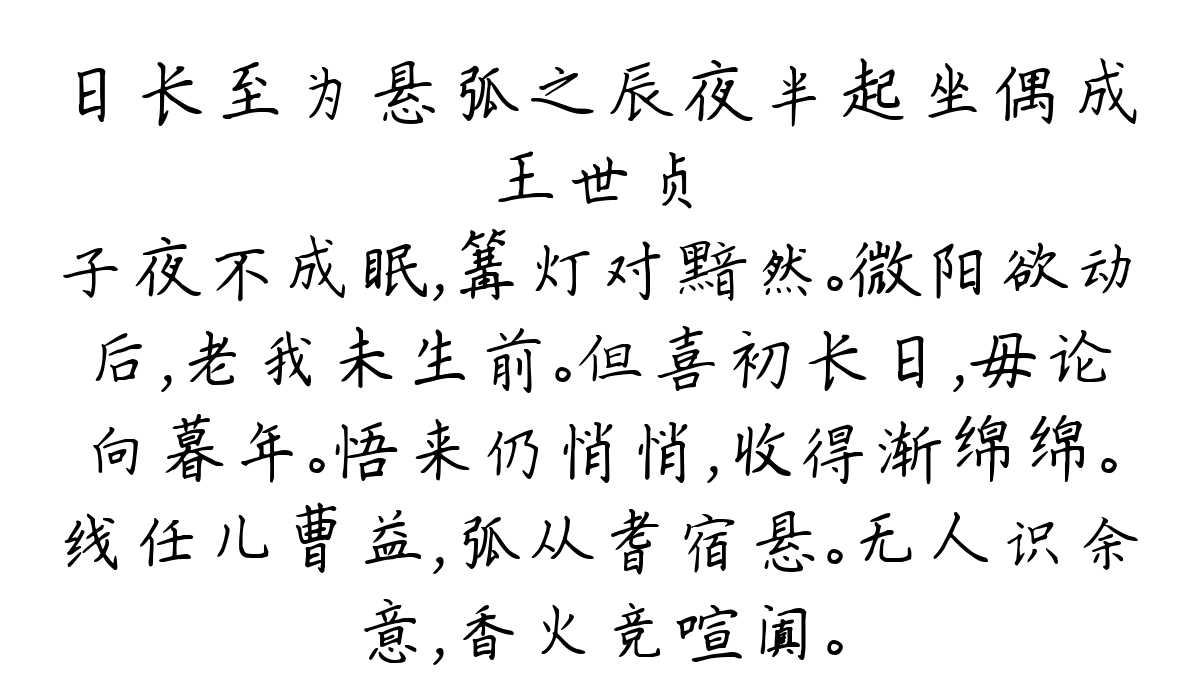 日长至为悬弧之辰夜半起坐偶成
王世贞
子夜不成眠,篝灯对黯然。微阳欲动
后,老我未生前。但喜初长日,毋论
向暮年。悟来仍悄悄,收得渐绵绵。
线任儿曹益,弧从耆宿悬。无人识余
意,香火竞喧阗。